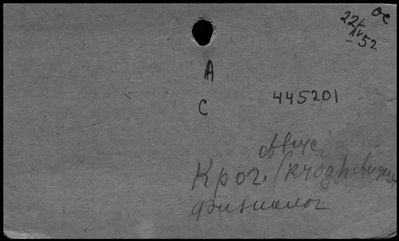 ос
22/IV 52
А
С 445201
Август
Крог. (Krogh August
физиолог